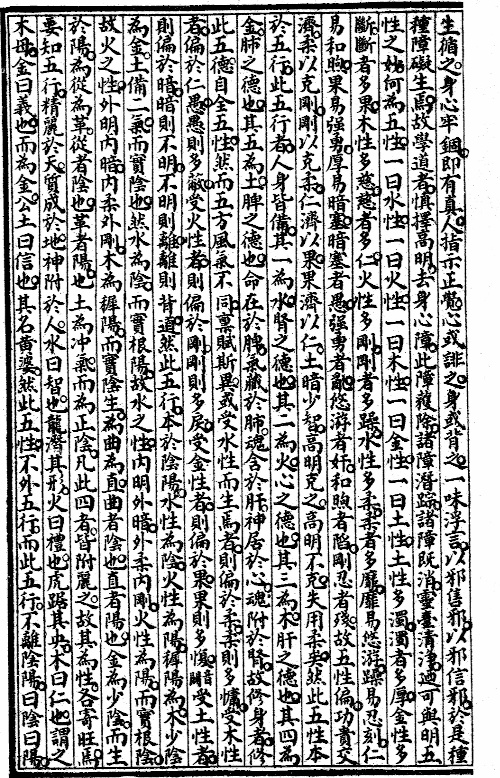 生循之身心牢錮即有真人指示正覺心或誹之身或背之一味浮言以邪信邪以邪信邪於是種
種障礙生焉故學道者慎擇高明去身心障此障複除諸障潛踪諸障既消靈臺清淨乃可與明五
性之妙何為五性一曰水性一曰火性一曰木性一曰金性一曰土性土性多濁濁者多厚金性多
斷斷者多果木性多慈慈者多仁火性多剛剛者多躁水性多柔柔者多靡靡易悠游躁易忍刻仁
易和煦果易強勇厚易暗塞暗塞者愚強勇者亂悠游者奸和煦者陷剛忍者殘故五性偏功貴交
濟柔以克剛剛以克柔仁濟以果果濟以仁土暗少智高明克之高明不克失用柔矣然此五性本
於五行此五行者人身皆備其一為水腎之德也其二為火心之德也其三為木肝之德也其四為
金肺之德也其五為土脾之德也命在於脾氣藏於肺魂含於肝神居於心魂附於腎故修身者修
此五德自全五性然而五方風氣不同稟賦斯異或受水性而生焉者則偏於柔柔則多慵受木性
者偏於仁愚愚則多敵受火性者則偏於剛剛則多戾受金性者則偏於果果則多愎受土性者
則偏於暗暗則不明不明則離離則背道然此五行本於陰陽水性為陰火性為陽穉陽為木少陰
為金土備二氣而實陰也然水為陰而實根陽故水之性內明外暗外柔內剛火性為陽而實根陰
故火之性外明內暗內柔外剛木為穉陽而實陰生為曲為直曲者陰也直者陽也金為少陰而生
於陽為從為革從者陰也革者陽也土為冲氣而為正陰凡此四者皆附麗之故其為性各寄旺焉
要知五行精麗於天質成於地神附於人水曰智也龍潛其形火曰禮也虎踞其央木曰仁也謂之
木母金曰義也而為金公土曰信也其名黃婆然此五性不外五行而此五行不離陰陽曰陰曰陽